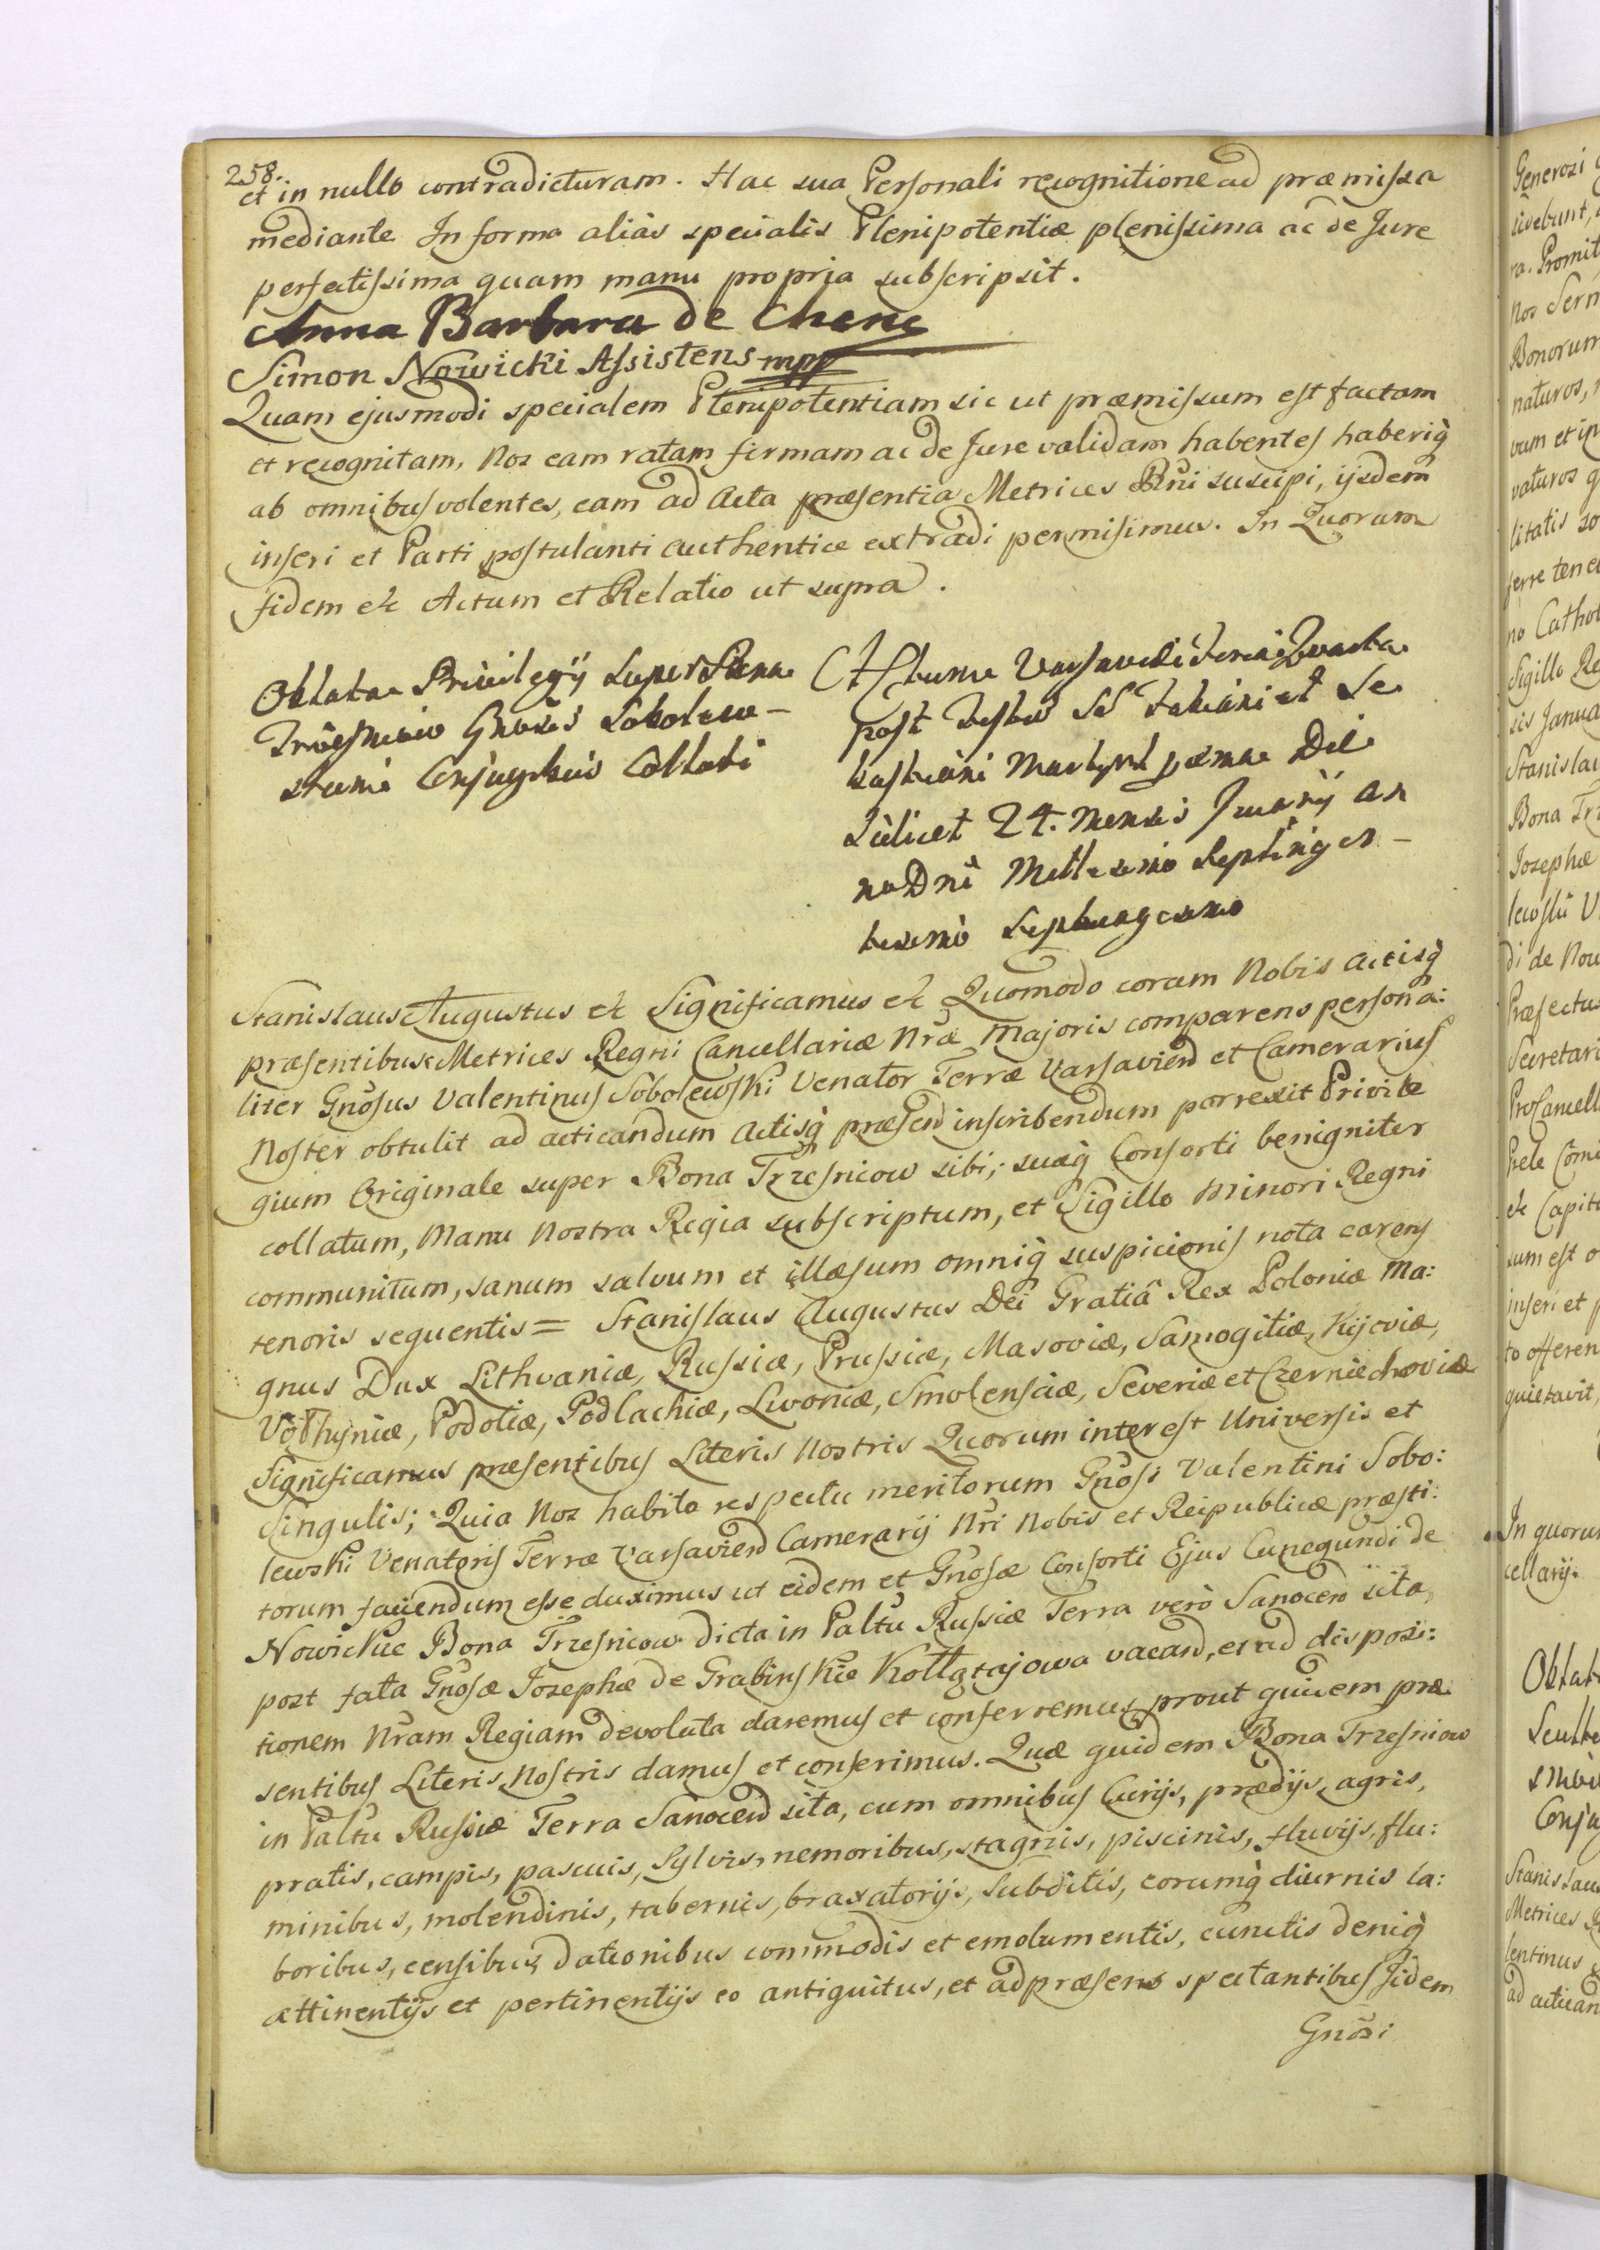 258.
et in nullo contradicturam. Hac sua Personali recognitione ad præmissa
mediante In forma aliàs specialis Plenipotentiæ plenissima ac de Jure
perfectissima quam manu propria subscripsit.
Anna Barbara de Chene
Simon Nowicki Assistens mpp
Quam ejusmodi specialem Plenipotentiam sic ut præmissum est factam
et recognitam, Nos eam ratam firmam ac de Jure validam habentes haberiq̀
ab omnibus volentes, eam ad Acta præsentia Metrices Rñi suscipi, ijsdem
inseri et Parti postulanti authentice extradi permisimus. In Quorum
fidem &c Actum et Relatio ut supra.
Oblata Privilegij super Bona
Trzesniow Gnosis Sobolew-
skim Conjugibus Collati
Actum Varsaviæ Feria Quarta
post Festum SS Fabiani et Se
bastiani Martyrum proxima Die
scilicet 24. mensis Januarij An
no Dni Millesimo Septingen-
tesimo Septuagesimo
Stanislaus Augustus &c Significamus &c Quomodo coram Nobis Actisq̀
præsentibus Metrices Regni Cancellariæ Nræ Majoris comparens persona:
liter Gnosus Valentinus Sobolewski Venator Terræ Varsavien et Camerarius
Noster obtulit ad acticandum Actisq̀ præsen inscribendum porrexit Privile
gium Originale super Bona Trzesniow sibi, suæq̀ Consorti benigniter
collatum, Manu Nostra Regia subscriptum, et Sigillo Minori Regni
communitum, sanum salvum et illæsum omniq̀ suspicionis nota carens
tenoris sequentis = Stanislaus Augustus Dei Gratiâ Rex Poloniæ Ma:
gnus Dux Lithvaniæ, Russiæ, Prussiæ, Masoviæ, Samogitiæ, Kijoviæ,
Volhyniæ, Podoliæ, Podlachiæ, Livoniæ, Smolensciæ, Severiæ et Czerniechoviæ
Significamus præsentibus Literis Nostris Quorum interest Universis et
Singulis; Quia Nos habito respectu meritorum Gnosi Valentini Sobo:
lewski Venatoris Terræ Varsavien Camerarij Nri Nobis et Reipublicæ præsti:
torum faciendum esse duximus ut eidem et Gnosæ Consorti Ejus Cunegundi de
Nowickie Bona Trzesniow dicta in Paltu Russiæ Terra verò Sanocen sita,
post fata Gnosæ Josephæ de Grabinskie Kołłątajowa vacan, et ad disposi:
tionem Nram Regiam devoluta daremus et conferremus, prout quidem præ
sentibus Literis Nostris damus et conferimus. Quæ quidem Bona Trzesniow
in Paltu Russiæ Terra Sanocen sita, cum omnibus Curijs, prædijs, agris,
pratis, campis, pascuis, Sylvis, nemoribus, stagnis, piscinis, fluvijs, flu:
minibus, molendinis, tabernis, braxatorijs, Subditis, eorumq̀ diurnis la:
boribus, censibus, dationibus commodis et emolumentis, cunctis deniq̀
attinentijs et pertinentijs eo antiquitus, et ad præsens spectantibus Jidem
Gnosi